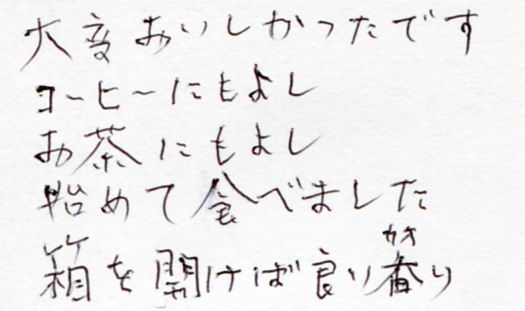 大変おいしかったです
コーヒーにもよし
お茶にもよし
始めて食べました
箱を開けば良い香り